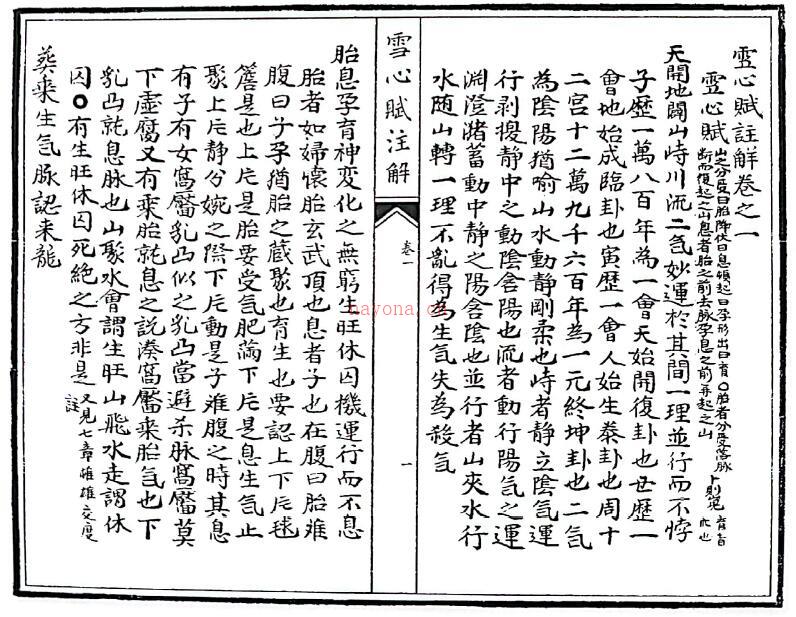 雪心賦註解卷之一
雪心賦
山之分受曰胎降伏曰息頓起曰孕形出曰育○胎者分受落脉
断而復起之山息者胎之前去脉孕息之前再起之山
育者穴也
天開地闢山峙川流二氣妙運於其間一理並行而不悖
子歷一萬八百年為一會天始開復卦也丑歷一
會地始成臨卦也寅歷一會人始生泰卦也周十
二宫十二萬九千六百年為一元終坤卦也二氣
為陰陽猶喻山水動静剛柔也峙者静立陰氣運
行剥換静中之動陰含陽也流者動行陽氣之運
渊澄潴蓄動中静之陽含陰也並行者山夾水行
水随山轉一理不亂得為生氣失為殺氣
雪心賦注解
卷一
一
胎息孕育神变化之無窮生旺休囚機運行而不息
胎者如婦懷胎玄武頂也息者子也在腹曰胎难
腹曰子孕猶胎之藏聚也育生也要認上下片毬
簷是也上片是胎要受氣肥滿下片是息生氣止
聚上片静兮婉之際下片動是子难腹之時其息
有子有女窩靨乳凸似之乳凸當避杀脉窩靨莫
下虚靥又有乘胎就息之説湊窩靨乘胎氣也下
乳凸就息脉也山聚水會謂生旺山飛水走謂休
囚○有生旺休囚死絶之方非是
又見七章雌雄交度
註
葬乘生氣脉認来龍
nayona.cn